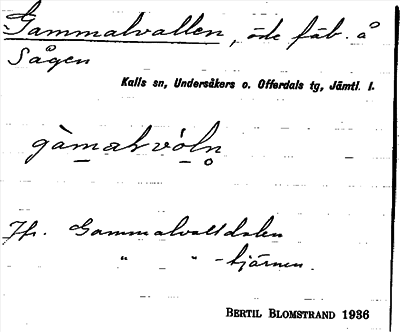 Gammalvallen, öde fäb. å
Sågen
Kalls sn, Undersåkers o. Offerdals tg, Jämtl. l.
gàmalvóln
Jfr. Gammalvalldalen
" " -tjärnen.
BERTIL BLOMSTRAND 1936